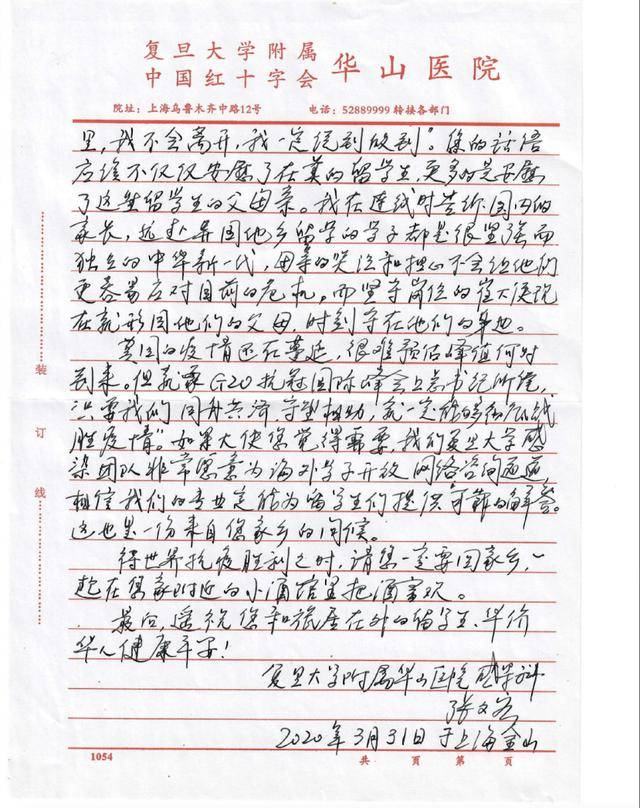 复旦大学附属
中国红十字会 华山医院
院址：上海乌鲁木齐中路12号 电话：52889999 转接各部门
里，我不会离开，我一定说到做到”。您的话语
应该不仅仅安慰了在英的留学生，更多的是安慰
了这些留学生的父母亲。我在连线时告诉国内的
家长，远赴异国他乡留学的学子都是很坚强而
独立的中华新一代，母亲的哭泣和担心不会给他们
更容易应对目前的危机，而坚守岗位的崔大使现
在就形同他们的父母，时刻守在他们的身边。
英国的疫情还在蔓延，很难预估峰值何时
到来。但就象G20抗冠国际峰会上总书记所信，
只要我们同舟共济，守望相助，就一定能够彻底战
胜疫情”。如果大使您觉得需要，我们复旦大学感
染团队非常愿意为海外学子开放网络咨询通道，
相信我们的专业定能为留学生们提供可靠的解答。
这也是一份来自您家乡的问候。
待世界抗疫胜利之时，请您一定要回家乡，一
起在您家附近的小酒馆里把酒言欢。
最后，遥祝您和旅居在外的留学生、华侨
华人健康平安！
复旦大学附属华山医院感染科
张文宏
2020年3月31日于上海金山
装
订
线
1054 共 页 第 页